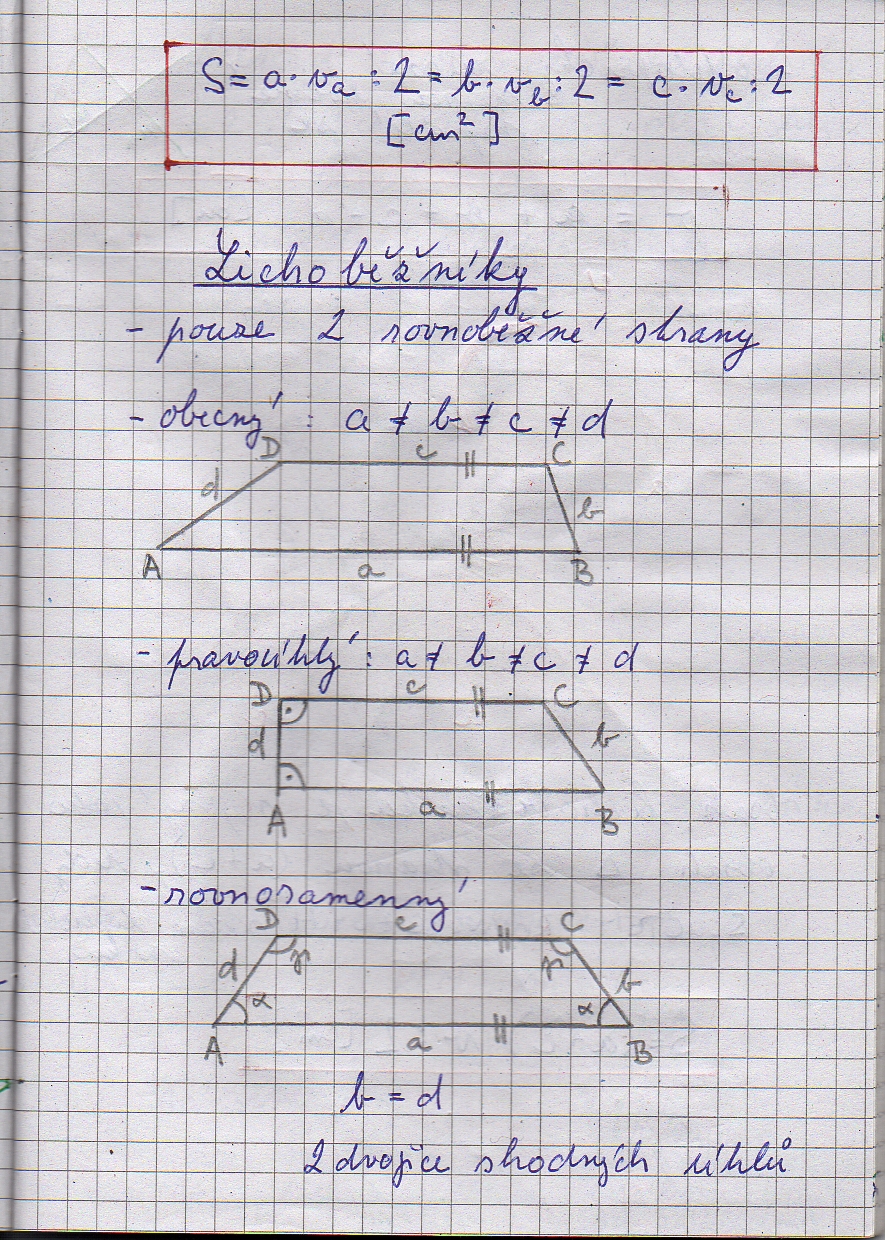 S = a · vₐ : 2 = b · v_b : 2 = c · v_c : 2
[cm²]
Lichoběžníky
- pouze 2 rovnoběžné strany
- obecný : a ≠ b ≠ c ≠ d
D c C
d b
A a B
- pravoúhlý : a ≠ b ≠ c ≠ d
D c C
d b
A a B
- rovnoramenný
D c C
d γ γ b
α α
A a B
b = d
2 dvojice shodných úhlů